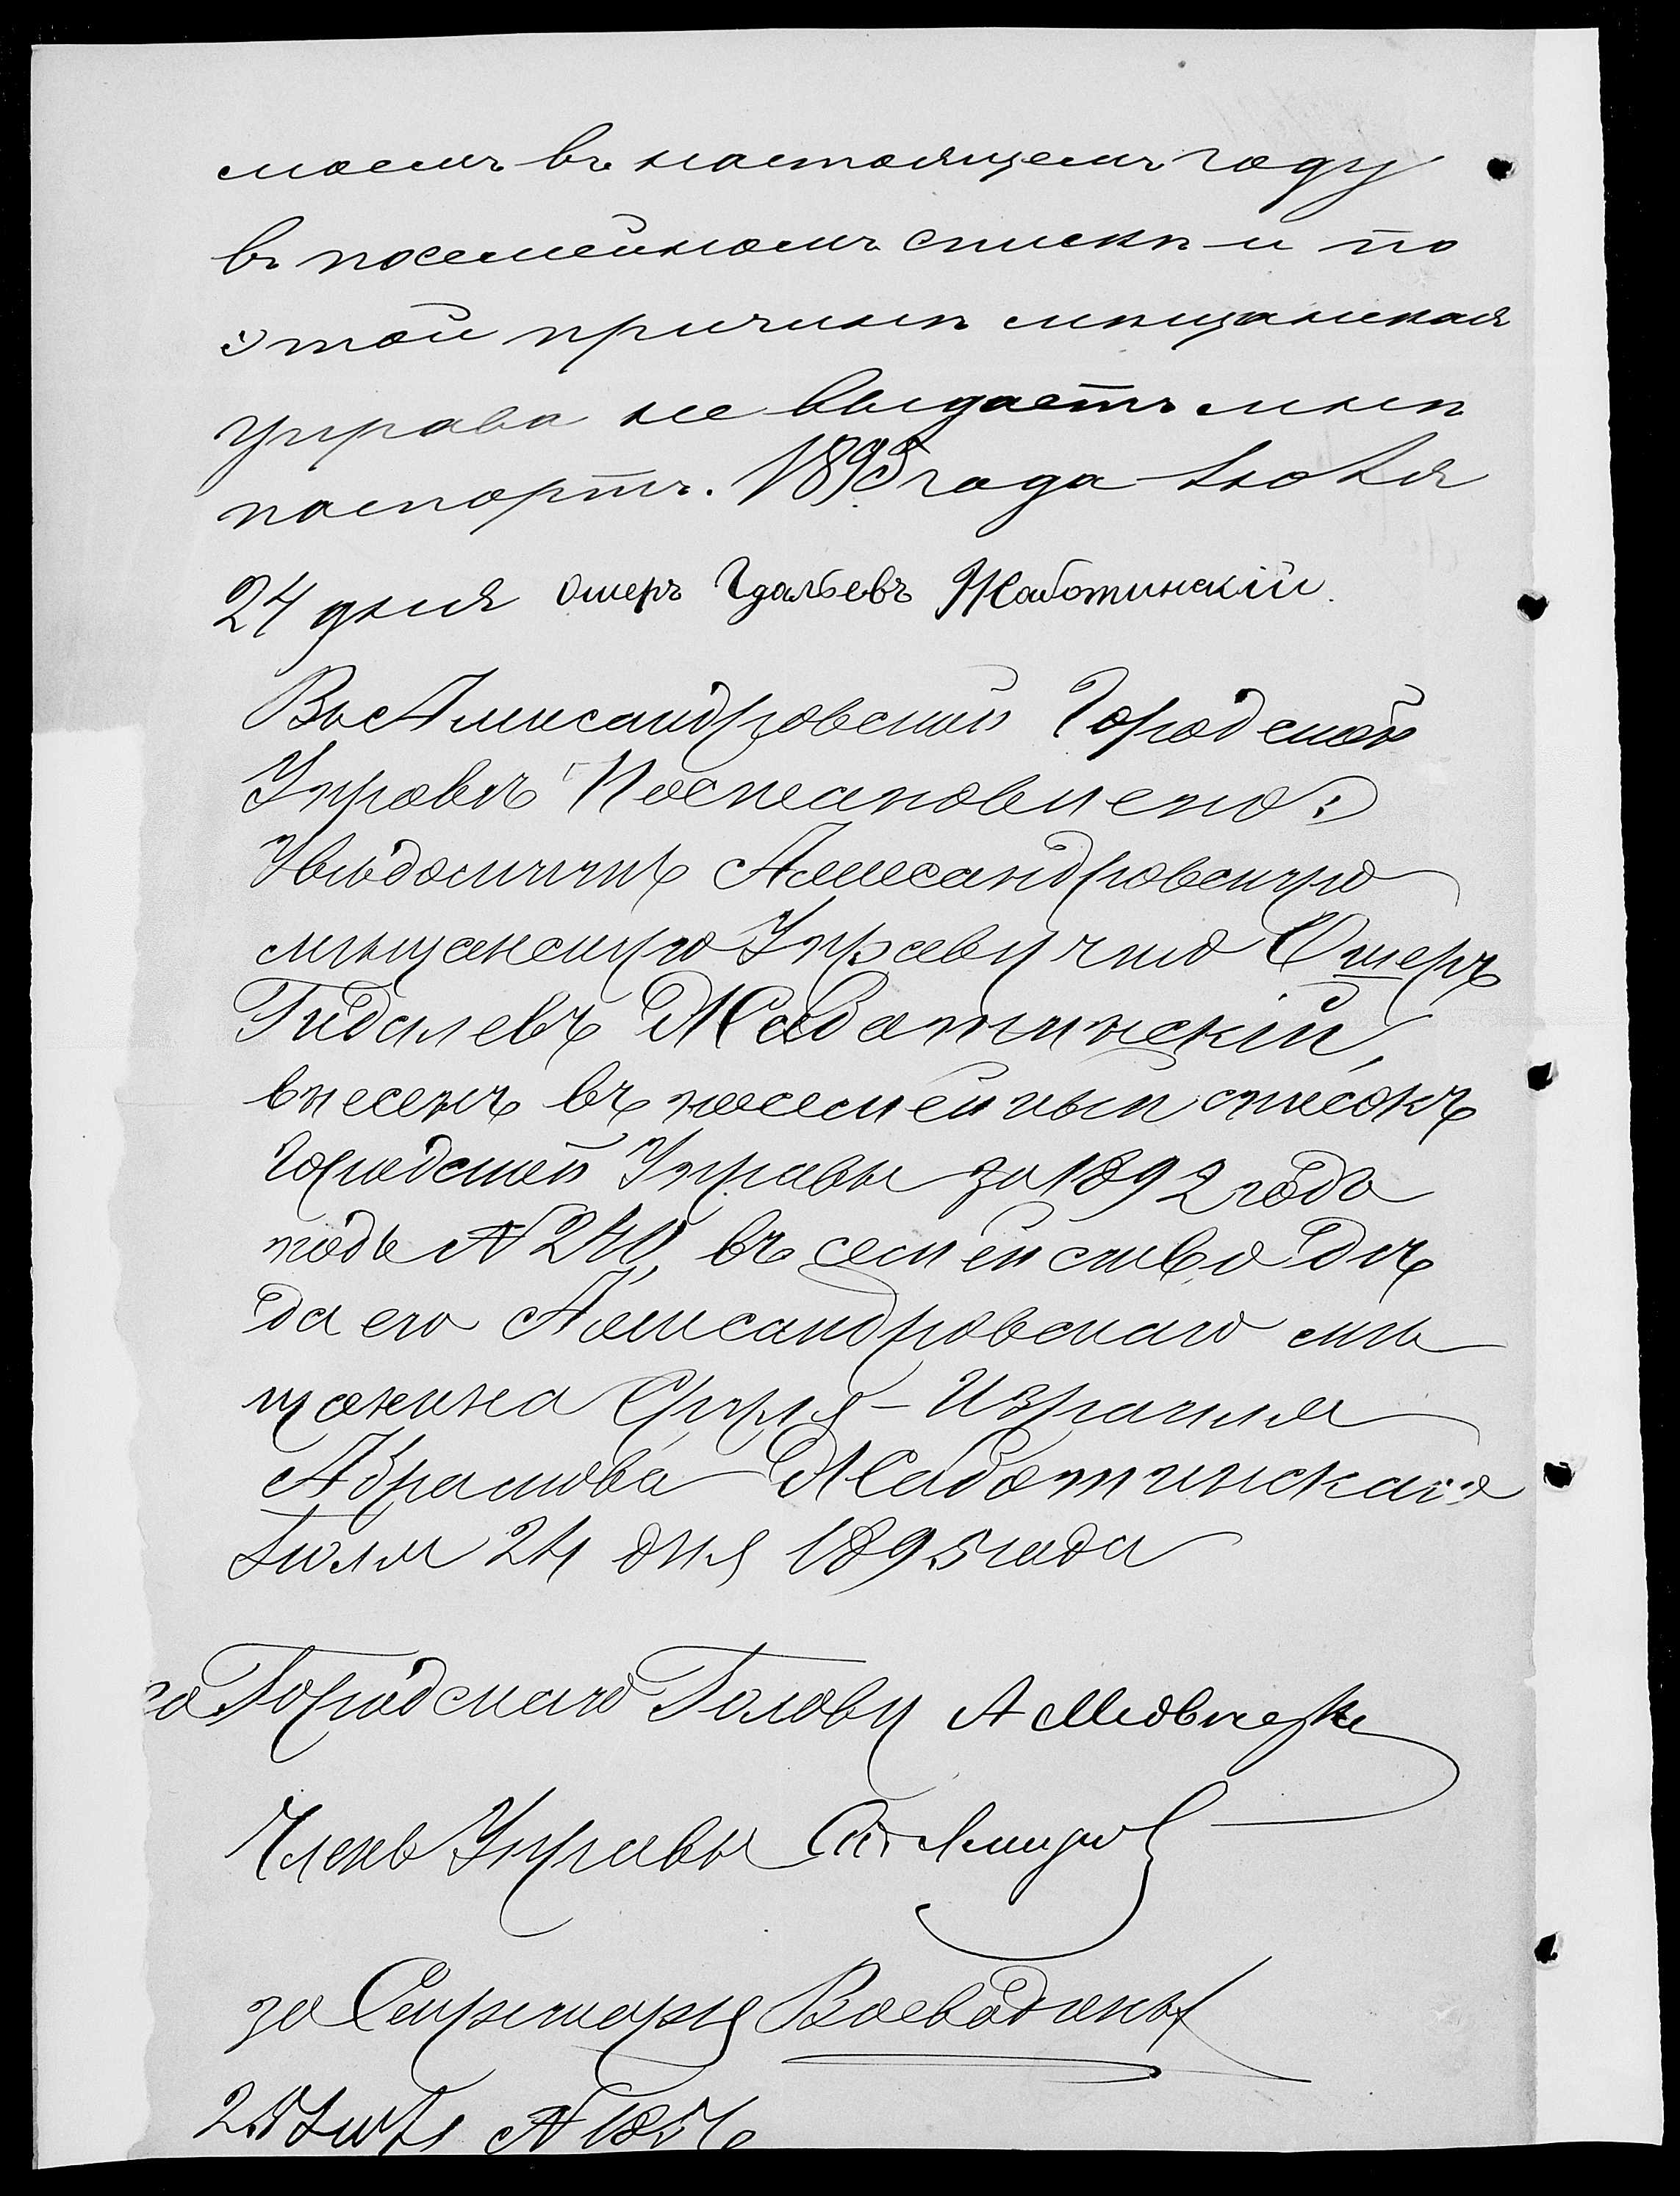 моемъ въ настоящемъ году
въ посемейномъ спискѣ и по
этой причинѣ мѣщанская
управа не выдаетъ мнѣ
паспортъ. 1895 года Июля
24 дня Ошеръ Гдальевъ Жаботинскій.
Въ Александровской Городской
Управѣ Постановлено:
Увѣдомить Александровскую
мѣщанскую Управу что Ошеръ
Гидалевъ Жаботинскій,
внесенъ въ посемейный списокъ
Городской Управы за 1892 года
подъ № 240, въ семейство дѣ
да его Александровскаго мѣ
щанина Сруля-Израиля
Абрамова Жаботинскаго
Июля 24 дня 1895 года
за Городского Голову А
Членъ Управы
за Секретаря
25 Июля № 1856